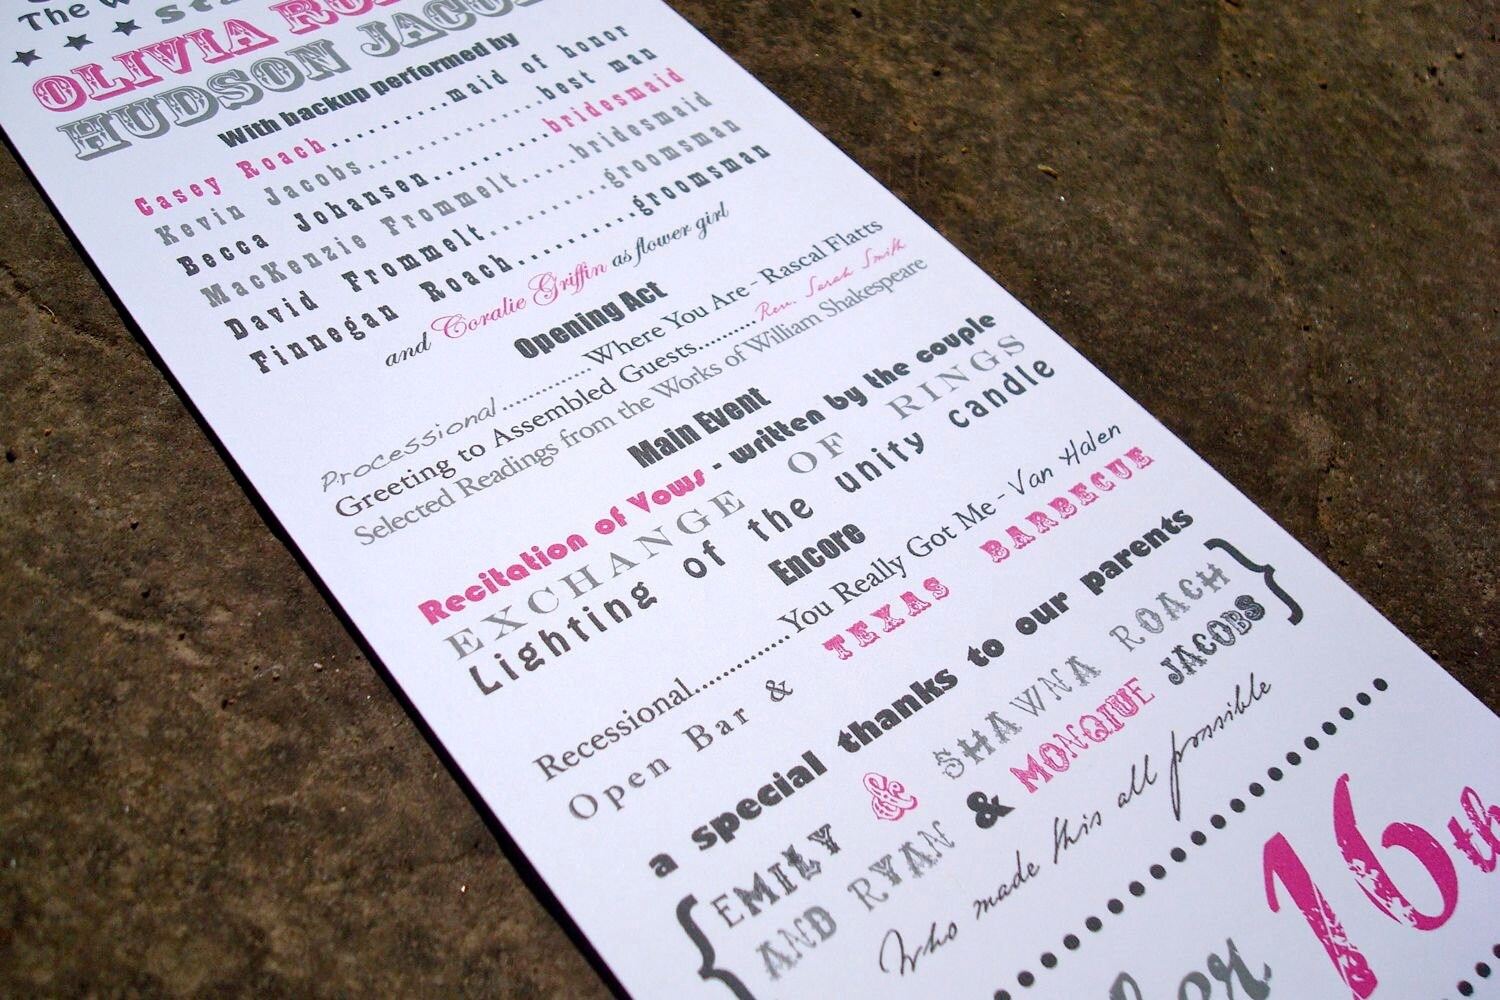 The
★ ★ ★
OLIVIA
HUDSON
With backup performed by
Casey Roach.........maid of honor
Kevin Jacobs..............best man
Becca Johansen.........bridesmaid
MacKenzie Frommelt....bridesmaid
David Frommelt.........groomsman
Finnegan Roach.........groomsman
and Coralie Griffin as flower girl
Opening Act
Processional ..............Where You Are - Rascal Flatts
Greeting to Assembled Guests..........Rev. Sarah Smith
Selected Readings from the Works of William Shakespeare
Main Event
Recitation of Vows - written by the couple
EXCHANGE OF RINGS
Lighting of the unity candle
Encore
Recessional..............You Really Got Me - Van Halen
Open Bar & TEXAS BARBECUE
a special thanks to our parents
{EMILY & SHAWNA ROACH
AND RYAN & MONQIUE JACOBS}
Who made this all possible
16th